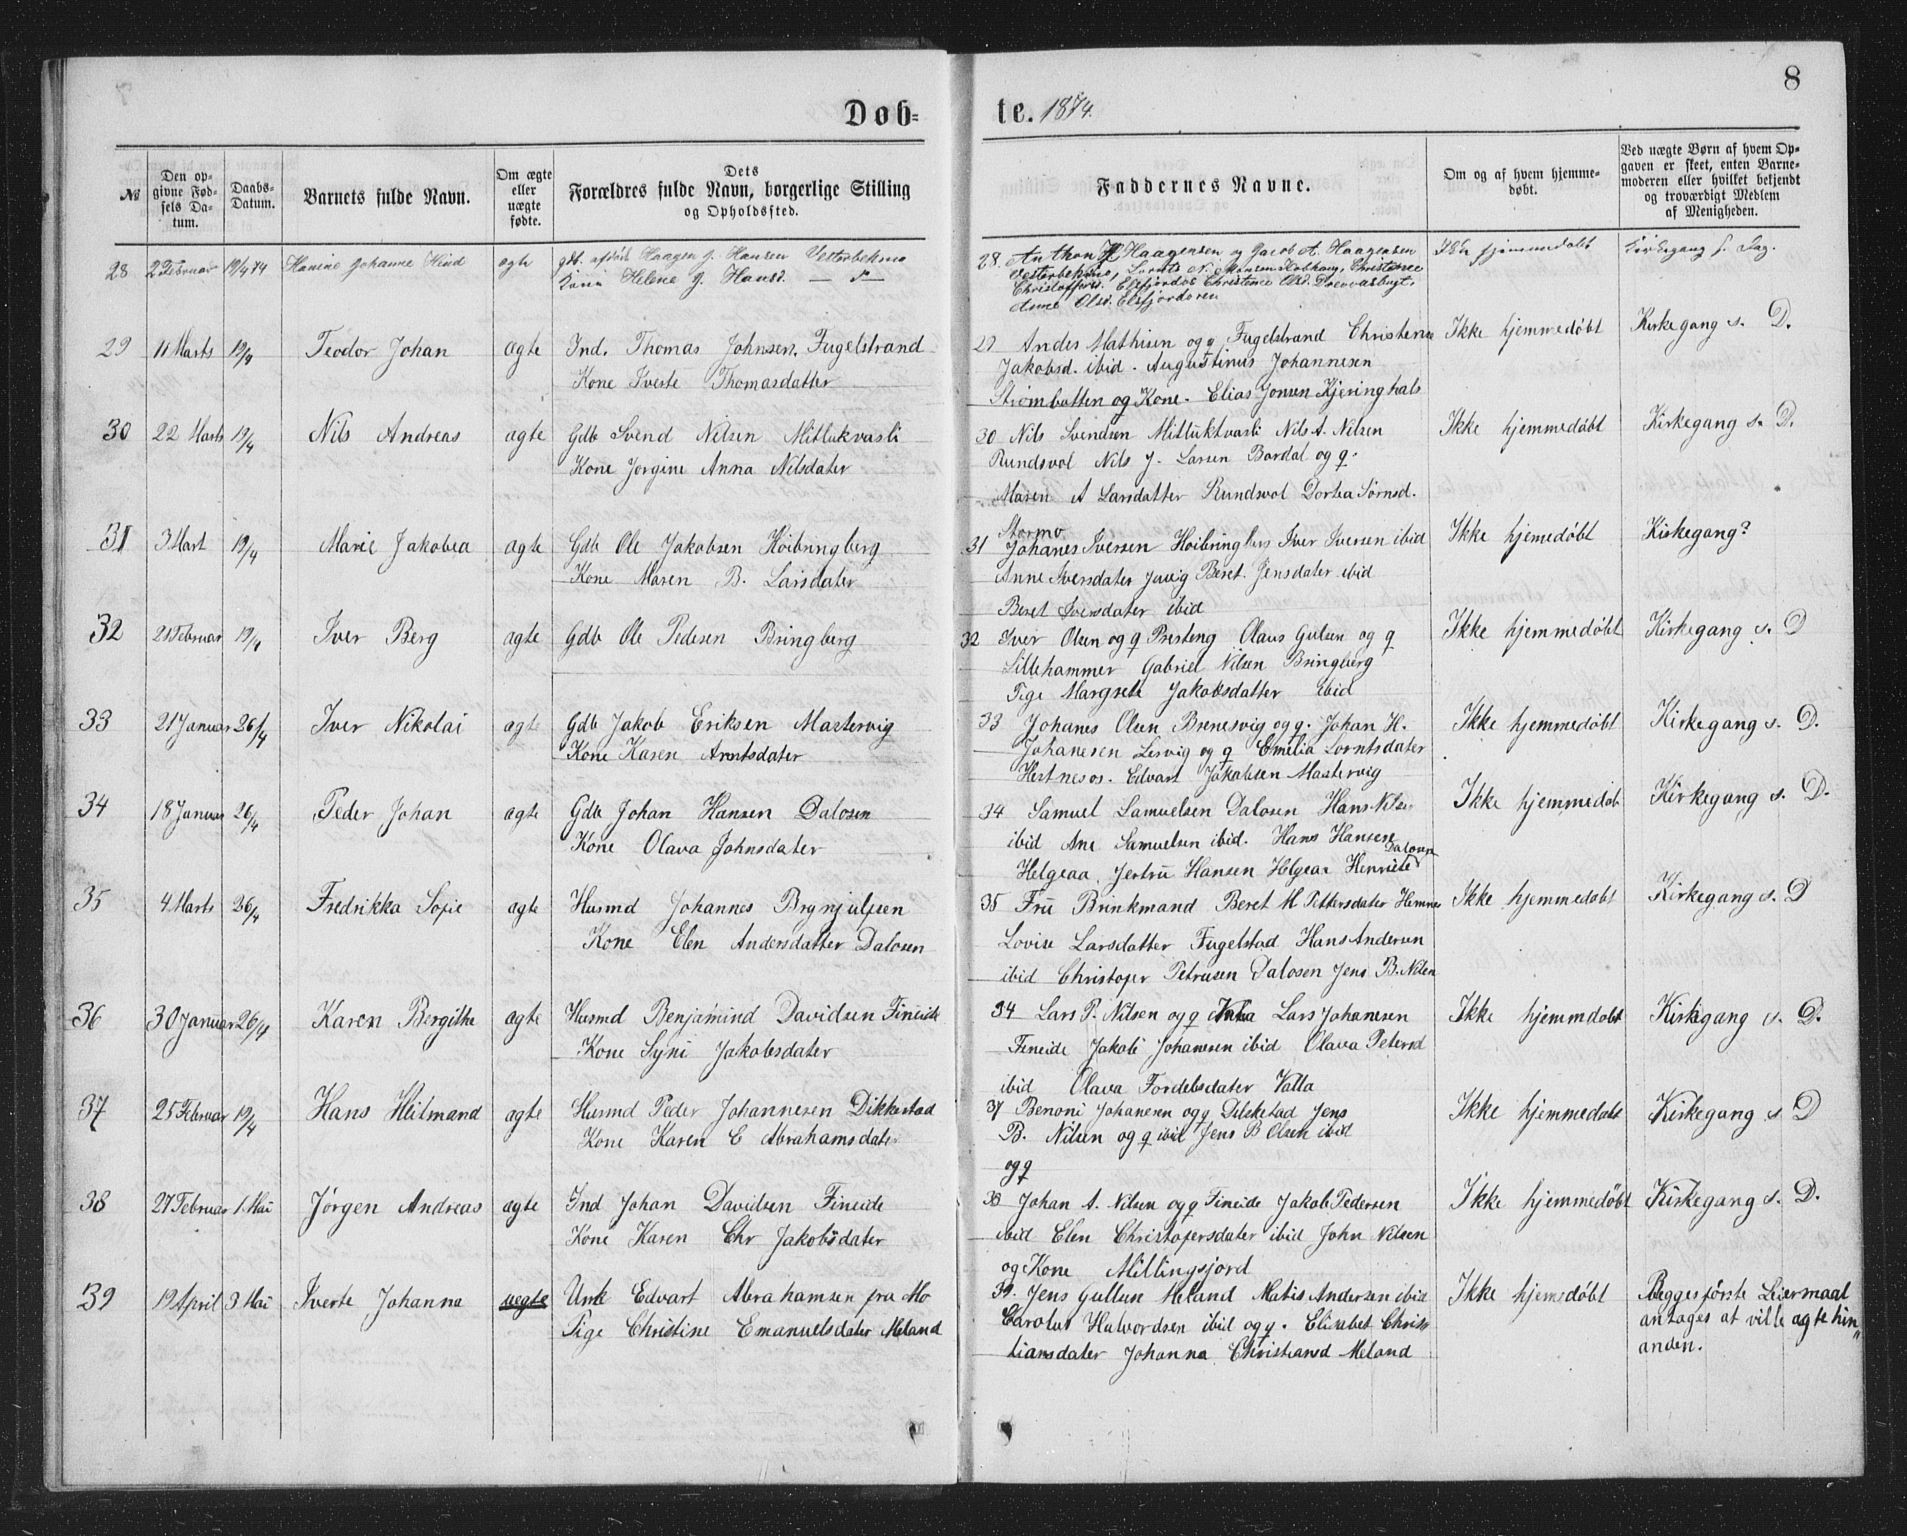 8
Døb=
te. 1874.
№
Den op-
givne Fød-
sels Da-
tum.
Daabs-
Datum.
Barnets fulde Navn.
Om ægte
eller
uægte
fødte.
Dets
Forældres fulde Navn, borgerlige Stilling
og Opholdssted.
Faddernes Navne.
Om og af hvem hjemme-
døbt.
Ved uægte Børn af hvem Op-
gaven er skeet, enten Barne-
moderen eller hvilket bekjendt
og troværdigt Medlem
af Menigheden.
28 2 Februar 19/4 74 Hanine Johanne Kind agte Haagen J. Hansen Vesterbekmo
Helene J. Hansd. — —
28. Anthon H Haagensen og Jacob A. Haagensen
Vesterbekmo, Lornts N. Christine
Christoffersd. Elsfjordos Christence Olsd.
Anne Olsd. Elsfjordoren
Ikke hjemmedøbt
Kirkegang s. Dag.
29 11 Marts 19/4 Teodor Johan agte Ind. Thomas Johnsen, Fugelstrand
Kone Iverte Thomasdatter
29 Andes Mathisen og q Fugelstrand Christence
Jakobsd. ibid. Augustinus Johannesen
Strømbotten og Kone. Elias Jonsen Kjeringhals
Ikke hjemmedøbt
Kirkegang s. D.
30 22 Marts 19/4 Nils Andreas agte Gdb Svend Nilsen Mitlukvasli
Kone Jorgine Anna Nilsdater
30 Nils Svendsen Mitluktvasli Nils A. Nilsen
Rundsvol Nils J. Larsen Bardal og q.
Maren A Larsdatter Rundsvol Dortea Sørnsd.
Stormo
Ikke hjemmedøbt
Kirkegang s. D.
31 3 Mart 19/4 Marie Jakobea agte Gdb Ole Jakobsen Høibringberg
Kone Maren B. Larsdater
31 Johanes Iversen Hoibringbers Iver Iversen ibid
Anne Iversdater Beret Jensdater ibid
Beret Iversdater ibid
Ikke hjemedøbt
Kirkegang?
32 21 Februar 19/4 Iver Berg agte Gdb Ole Pedesen Bringberg
32 Iver Olsen og q Presteng Olaus Gulsen og q
Lillehammer Gabriel Nilsen Bringberg
Pige Margrete Jakobsdatter ibid
Ikke hjemmedøbt
Kirkegang s. D
33 21 Januar 26/4 Iver Nikolai agte Gdb Jakob Eriksen Mastervig
Kone Karen Arntsdater
33 Johanes Olsen Brenesvig og q. Johan H.
Johanesen Lervig og q Emelia Lorntsdater
Hestnesos. Edvart Jakobsen Mastervig
Ikke hjemmedøbt
Kirkegang s. D.
34 18 Januar 26/4 Peder Johan agte Gdb Johan Hansen Dalosen
Kone Olava Johnsdater
34 Samuel Samuelsen Dalosen Hans Nilse
ibid Ane Samuelsen ibid. Hans Hansen
Dalosen
Helgeaa, Jertru Hansen Helgeaa Henriete
Ikke hjemmedøb
Kirkegang s. D.
35 4. Marts 26/4 Fredrikka Sofie agte Husmd Johannes Brynjulfsen
Kone Elen Andersdatter Dalosen
35 Fru Brinkmand Beret M Pettersdater Hemnes
Lovise Larsdatter Fugelstad Hans Andersen
ibid Christofer Petrusen Dalosen Jens B. Nilsen
Ikke hjemmedøbt
Kirkegang s. D
36 30 Januar 26/4 Karen Bergitte agte Husmd Benjamind Davidsen Fineide
Kone Syni Jakobsdater
34 Lars P. Nilsen og q Lars Johanesen
Fineide Jakob Johanesen ibid Olava Petersd
ibid Olava Fordelsdater Valla
Ikke hjemmdøbt
Kirkegang s. D.
37 25 Februar 19/4 Hans Hilmand agte Husmd Peder Johannesen Dikkestad
Kone Karen E Abrahamsdater
37 Benoni Johanesen og q Dilkestad Jens
B. Nilsen og q ibid Jens B Olsen ibid
og q
Ikke hjemmedøbt
Kirkegang s. D
38 27 Februar 1. Mai Jørgen Andreas agte Ind Johan Davidsen Fineide
Kone Karen Chr Jakobsdater
38 Johan A. Nilsen og q Fineide Jakob Pedersen
ibid Elen Christofersdater ibid John Nilsen
og Kone Millingsjord
Ikke hjemmedøbt
Kirkegang s. D.
39 19 April 3 Mai Iverte Johanna uegte Unk Edvart Abrahamsen fra Mo
Pige Christine Emanuelsdater Meland
39. Jens Gullun Meland Matis Andersen ibid
Carolus Halvordsen ibid og q. Elisebet Chris
tiansdater Johanna Christiansd Meland
Ikke hjemedøbt
Begges første Leiermaal
antages at ville agte hin"
anden.